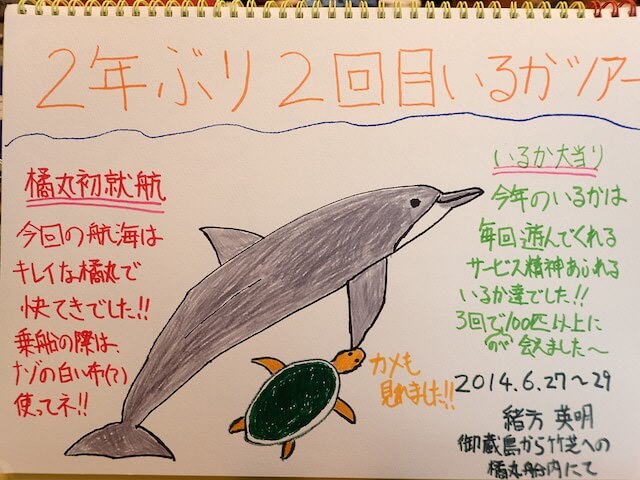 2年ぶり2回目いるかツアー
橘丸初就航
今回の航海は
キレイな橘丸で
快てきでした!!
乗船の際は、
ナゾの白い布(?)
使ってネ!!
いるか大当り
今年のいるかは
毎回遊んでくれる
サービス精神あふれる
いるか達でした!!
3回で100匹以上に
会えました〜
カメも
見れました!!
2014.6.27〜29
緒方 英明
御蔵島から竹芝への
橘丸船内にて